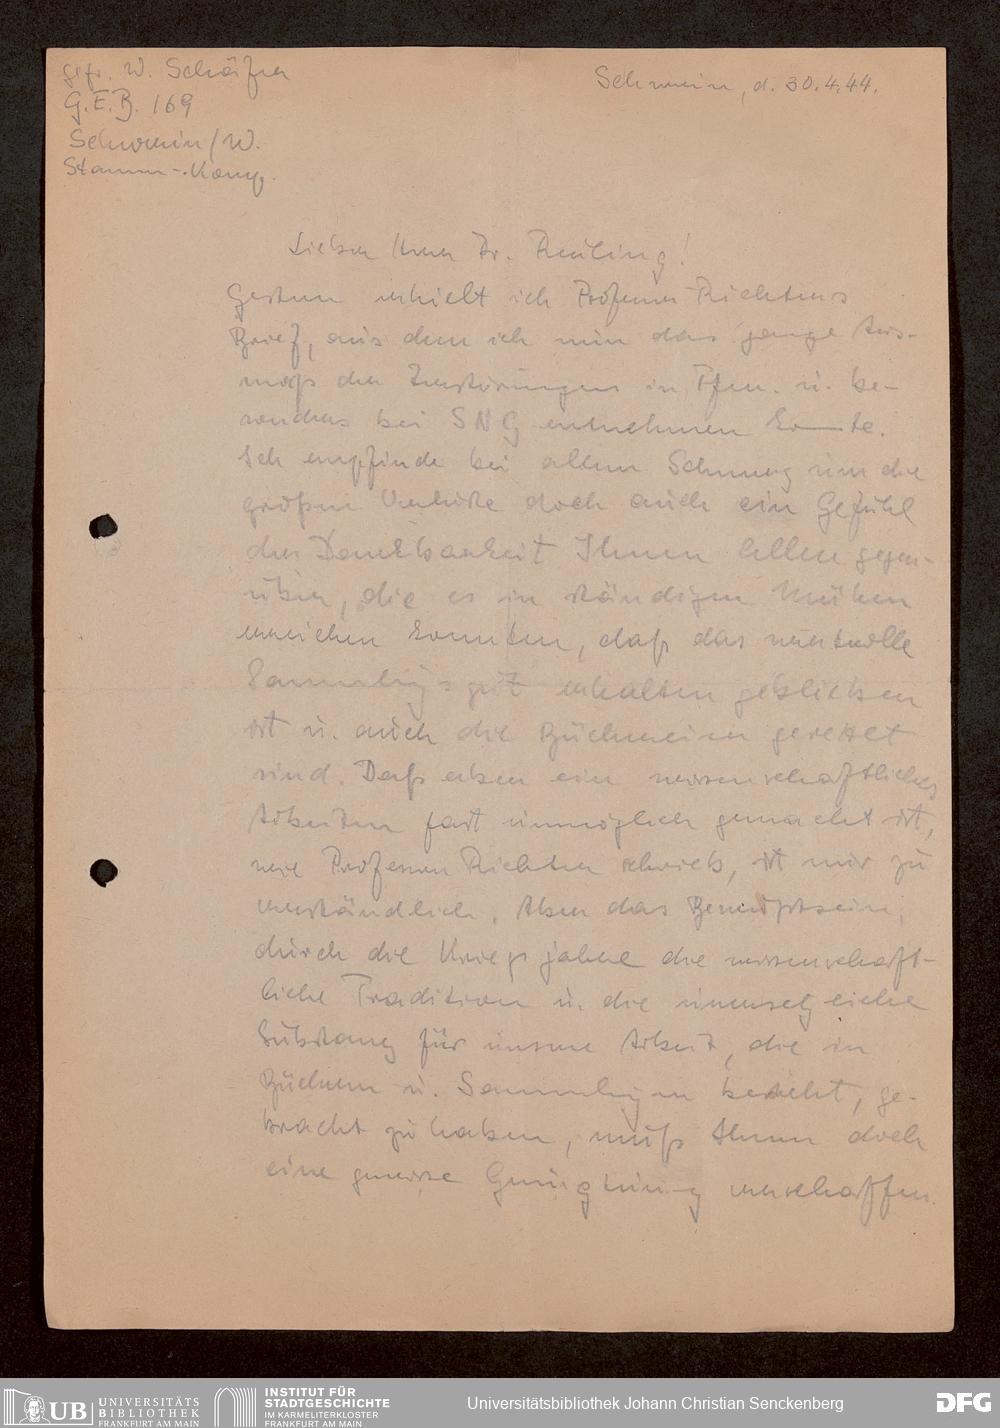 gefr. W. Schäfer
G.E.B. 169
Schwerin/W.
Stamm-Komp.
Schwerin, d. 30.4.44.
Lieber Herr Dr. !
Gestern erhielt ich Professor Richters
Brief, aus dem ich nun das ganze Aus-
maß der Zerstörungen in Ffm. u. be-
sonders bei SNG entnehmen konnte.
Ich empfinde bei allem Schmerz um die
großen Verluste doch auch ein Gefühl
der Dankbarkeit Ihnen Allen gegen-
über, die es in ständigen Mühen
erreichen konnten, daß das wertvolle
Sammlungsgut erhalten geblieben
ist u. auch die Büchereien gerettet
sind. Daß aber ein wissenschaftliches
Arbeiten fast unmöglich gemacht ist,
wie Professor Richter schrieb, ist mir zu
verständlich. Aber das Bewußtsein,
durch die Kriegsjahre die wissenschaft-
liche Tradition u. die unersetzliche
Substanz für unsere Arbeit, die in
Büchern u. Sammlungen beruht, ge-
bracht zu haben, muß Ihnen doch
eine gewisse Genugtuung verschaffen.
UB UNIVERSITÄTS
BIBLIOTHEK
FRANKFURT AM MAIN
INSTITUT FÜR
STADTGESCHICHTE
IM KARMELITERKLOSTER
FRANKFURT AM MAIN
Universitätsbibliothek Johann Christian Senckenberg
DFG